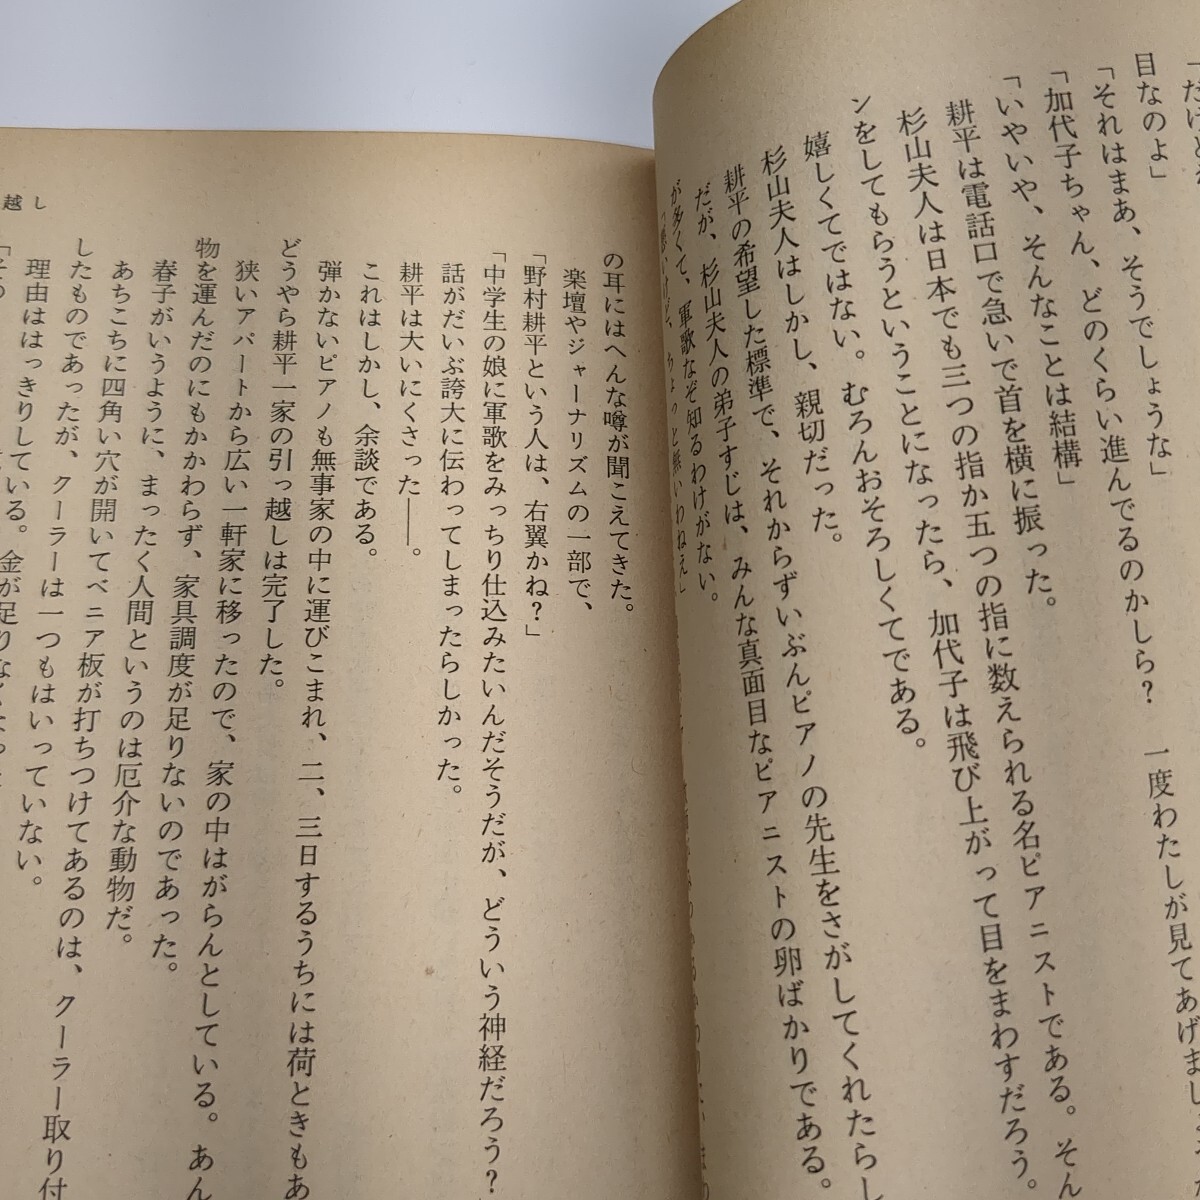 「だけど
目なのよ」
「それはまあ、そうでしょうな」
「加代子ちゃん、どのくらい進んでるのかしら？　一度わたしが見てあげまし
「いやいや、そんなことは結構」
耕平は電話口で急いで首を横に振った。
杉山夫人は日本でも三つの指か五つの指に数えられる名ピアニストである。そん
ンをしてもらうということになったら、加代子は飛び上がって目をまわすだろう。
嬉しくてではない。むろんおそろしくてである。
杉山夫人はしかし、親切だった。
耕平の希望した標準で、それからずいぶんピアノの先生をさがしてくれたらし
だが、杉山夫人の弟子すじは、みんな真面目なピアニストの卵ばかりである。
が多くて、軍歌なぞ知るわけがない。
「悪いけど、ちょっと無いわねえ」
の耳にはへんな噂が聞こえてきた。
楽壇やジャーナリズムの一部で、
「野村耕平という人は、右翼かね？」
「中学生の娘に軍歌をみっちり仕込みたいんだそうだが、どういう神経だろう？
話がだいぶ誇大に伝わってしまったらしかった。
耕平は大いにくさった――。
これはしかし、余談である。
弾かないピアノも無事家の中に運びこまれ、二、三日するうちには荷ときもあ
どうやら耕平一家の引っ越しは完了した。
狭いアパートから広い一軒家に移ったので、家の中はがらんとしている。あん
物を運んだのにもかかわらず、家具調度が足りないのであった。
春子がいうように、まったく人間というのは厄介な動物だ。
あちこちに四角い穴が開いてベニア板が打ちつけてあるのは、クーラー取り付
したものであったが、クーラーは一つもはいっていない。
理由ははっきりしている。金が足りなくなった
「その
越し